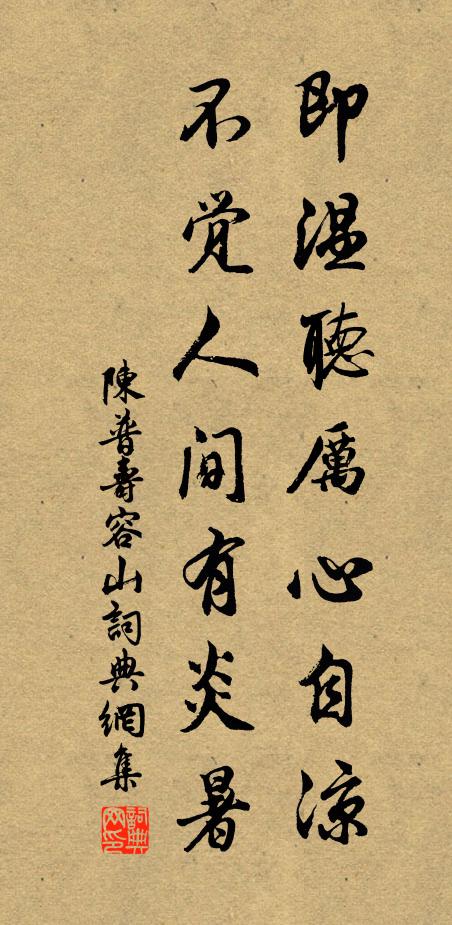 即温聽厲心自涼
不觉人间有炎暑
陳普壽容山詞典網集
詞典网印